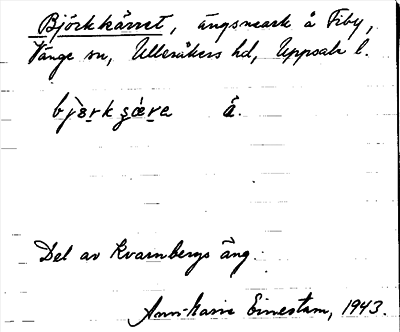 Björkkärret, ängsmark å Fiby,
Vänge sn, Ulleråkers hd, Uppsala l.
bjò̤rkʂǽra å.
Del av Kvarnbergs äng.
Ann-Marie Einestam, 1943.